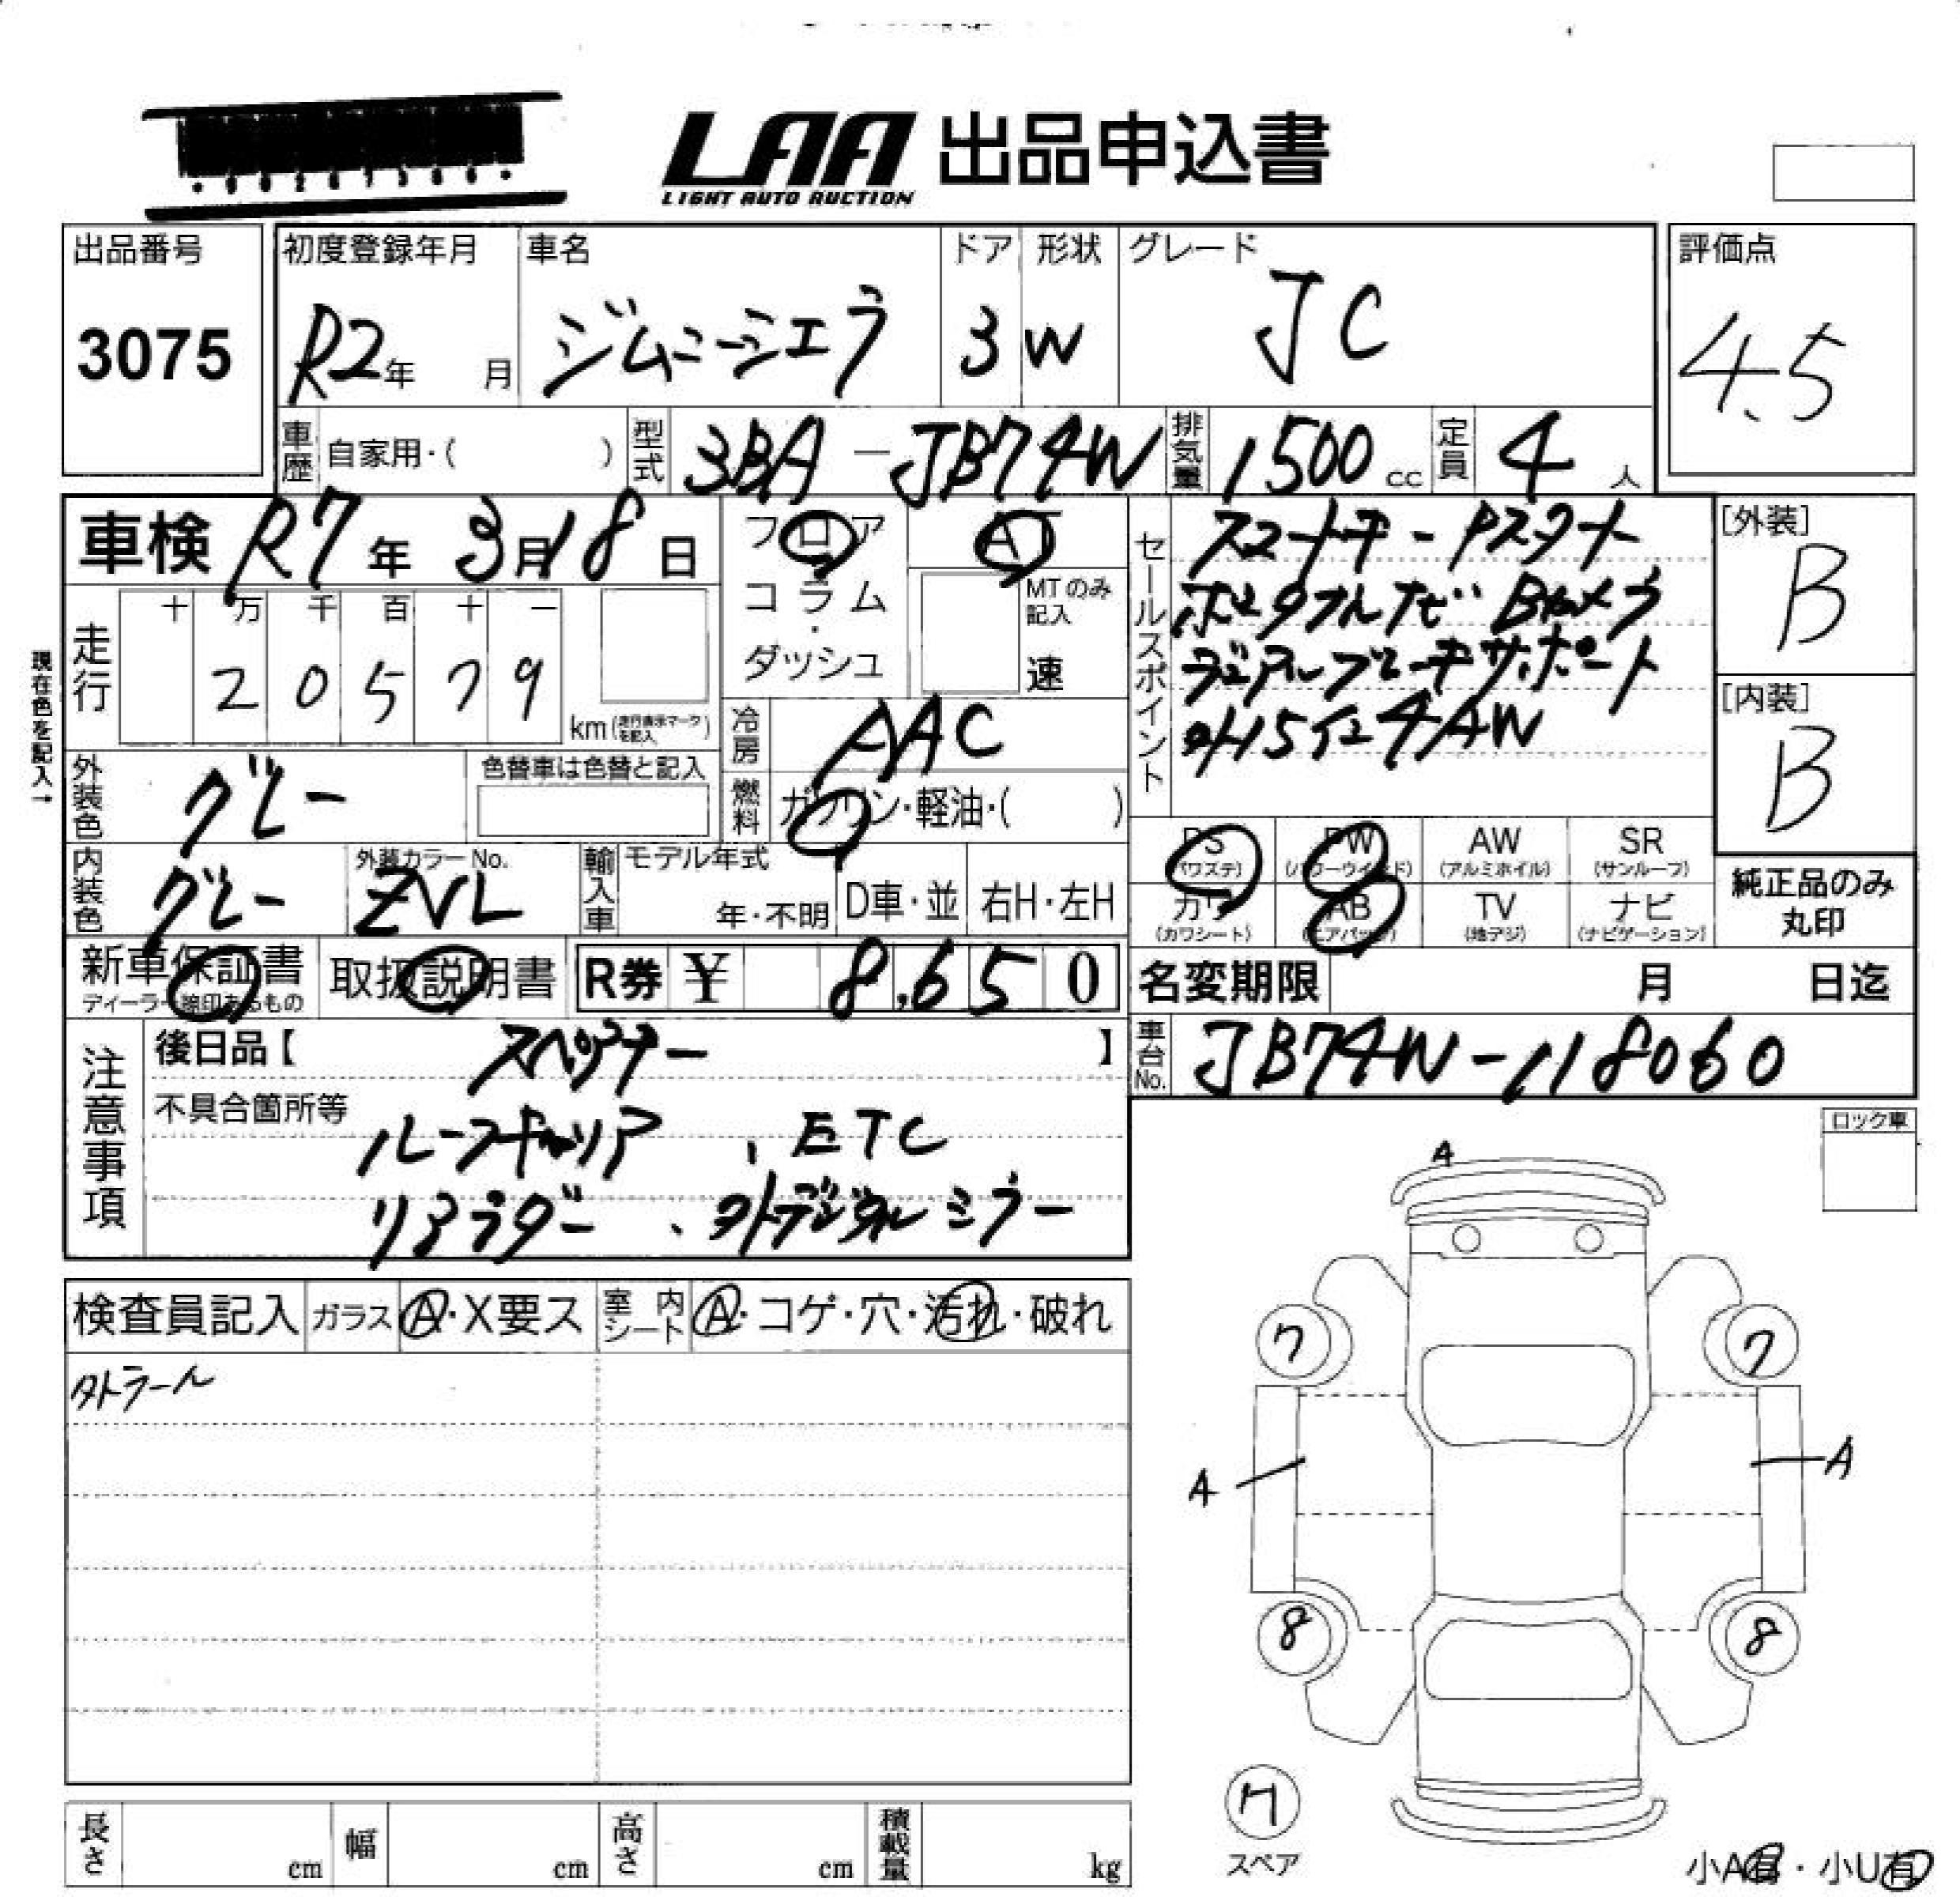 LAA 出品申込書
LIGHT AUTO AUCTION
出品番号
3075
初度登録年月
R2年 月
車名
ジムニーシエラ
ドア
3
形状
W
グレード
JC
評価点
4.5
車歴 自家用・( )
型式 3BA-JB74W
排気量 1500 cc
定員 4 人
車検 R7年 3月18日
フロア
コラム
・
ダッシュ
AT
MTのみ記入
速
セールスポイント
スマートキー Pスタート
ポータブルナビ Bカメラ
デュアルブレーキサポート
外15インチAW
[外装]
B
[内装]
B
現在色を記入→
走行 十 万 千 百 十 一
2 0 5 7 9
km(走行表示マークを記入)
冷房 AAC
燃料 ガソリン・軽油・( )
外装色 グレー
色替車は色替と記入
内装色 グレー
外装カラーNo.
ZVL
輸入車 モデル年式
年・不明
D車・並
右H・左H
PS (パワステ)
PW (パワーウインド)
AW (アルミホイル)
SR (サンルーフ)
カワ (カワシート)
AB (エアバック)
TV (地デジ)
ナビ (ナビゲーション)
純正品のみ
丸印
新車保証書
ディーラー捺印あるもの
取扱説明書
R券 ¥ 8,650
名変期限 月 日迄
車台No. JB74W-118060
注意事項
後日品【 スペアナー 】
不具合箇所等
ルーフキャリア 、ETC
リアラダー 、外デジタルミラー
ロック車
検査員記入 ガラス A・X要ス
室内シート A・コゲ・穴・汚れ・破れ
外ラール
A
7
7
A
A
8
8
スペア
長さ cm
幅 cm
高さ cm
積載量 kg
小A有・小U有